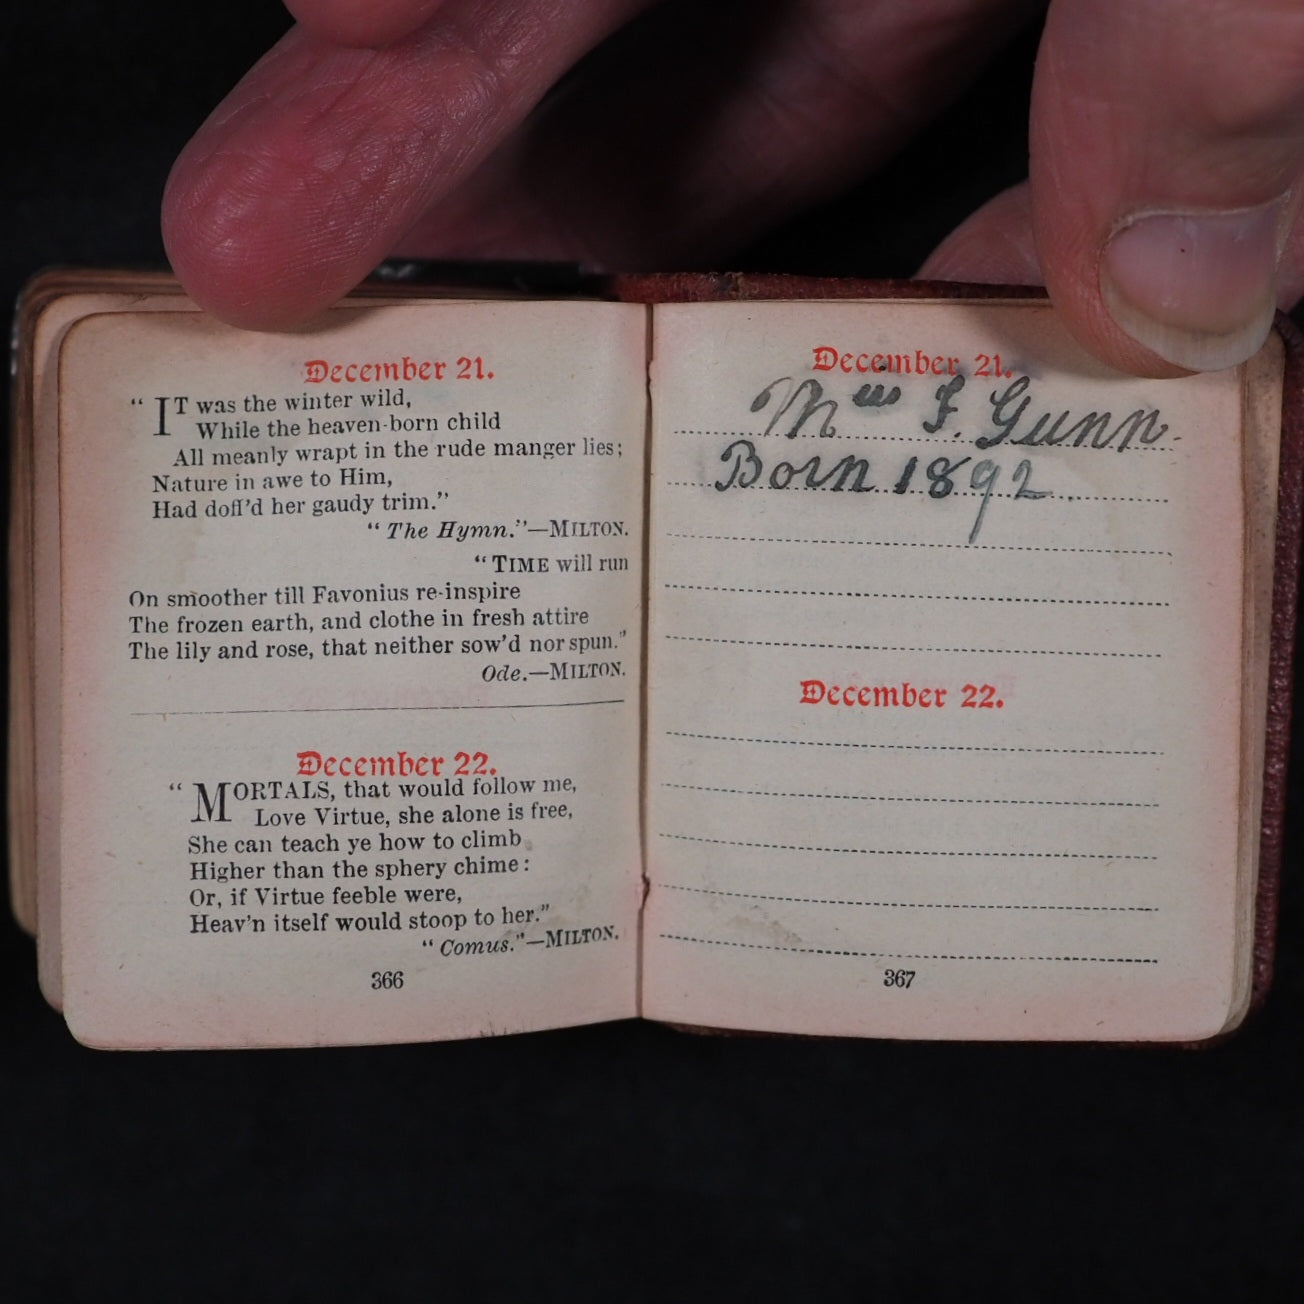 December 21.
“ IT was the winter wild,
While the heaven-born child
All meanly wrapt in the rude manger lies;
Nature in awe to Him,
Had doff'd her gaudy trim.”
“ The Hymn.”—MILTON.
“ TIME will run
On smoother till Favonius re-inspire
The frozen earth, and clothe in fresh attire
The lily and rose, that neither sow'd nor spun.”
Ode.—MILTON.
December 22.
“ MORTALS, that would follow me,
Love Virtue, she alone is free,
She can teach ye how to climb
Higher than the sphery chime:
Or, if Virtue feeble were,
Heav'n itself would stoop to her.”
“ Comus.”—MILTON.
366
December 21.
F. Gunn.
Born 1892
December 22.
367